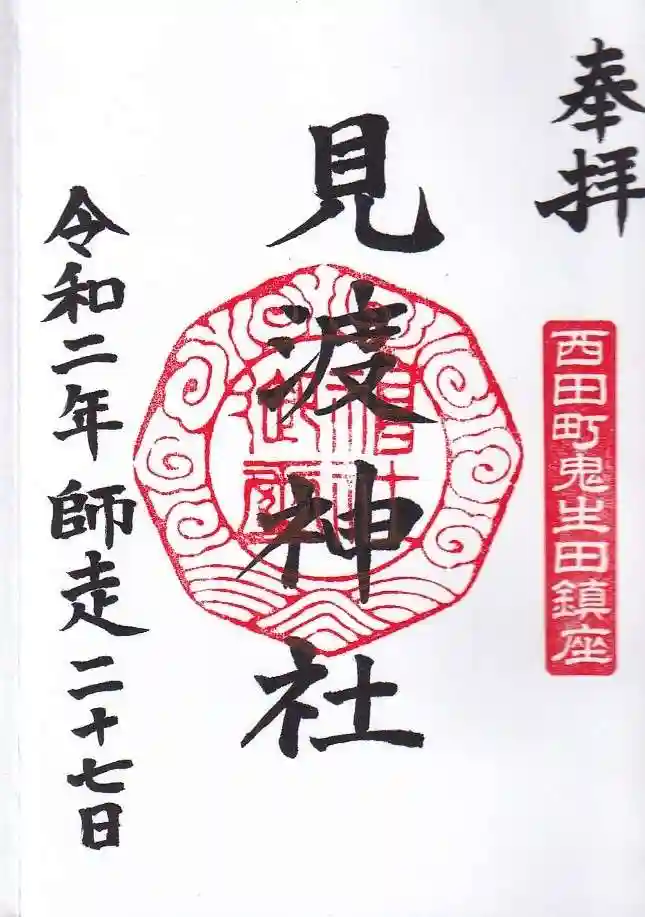 奉拝
西田町鬼生田鎮座
見渡神社
令和二年 師走 二十七日